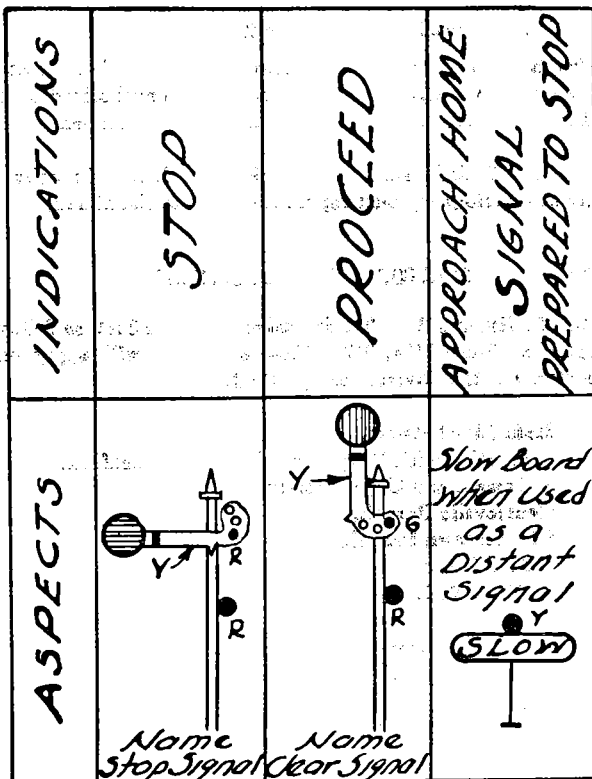 INDICATIONS
STOP
PROCEED
APPROACH HOME
SIGNAL
PREPARED TO STOP
ASPECTS
Y
R
R
Name
Stop Signal
Y
G
R
Name
Clear Signal
Slow Board
When Used
as a
Distant
Signal
Y
SLOW